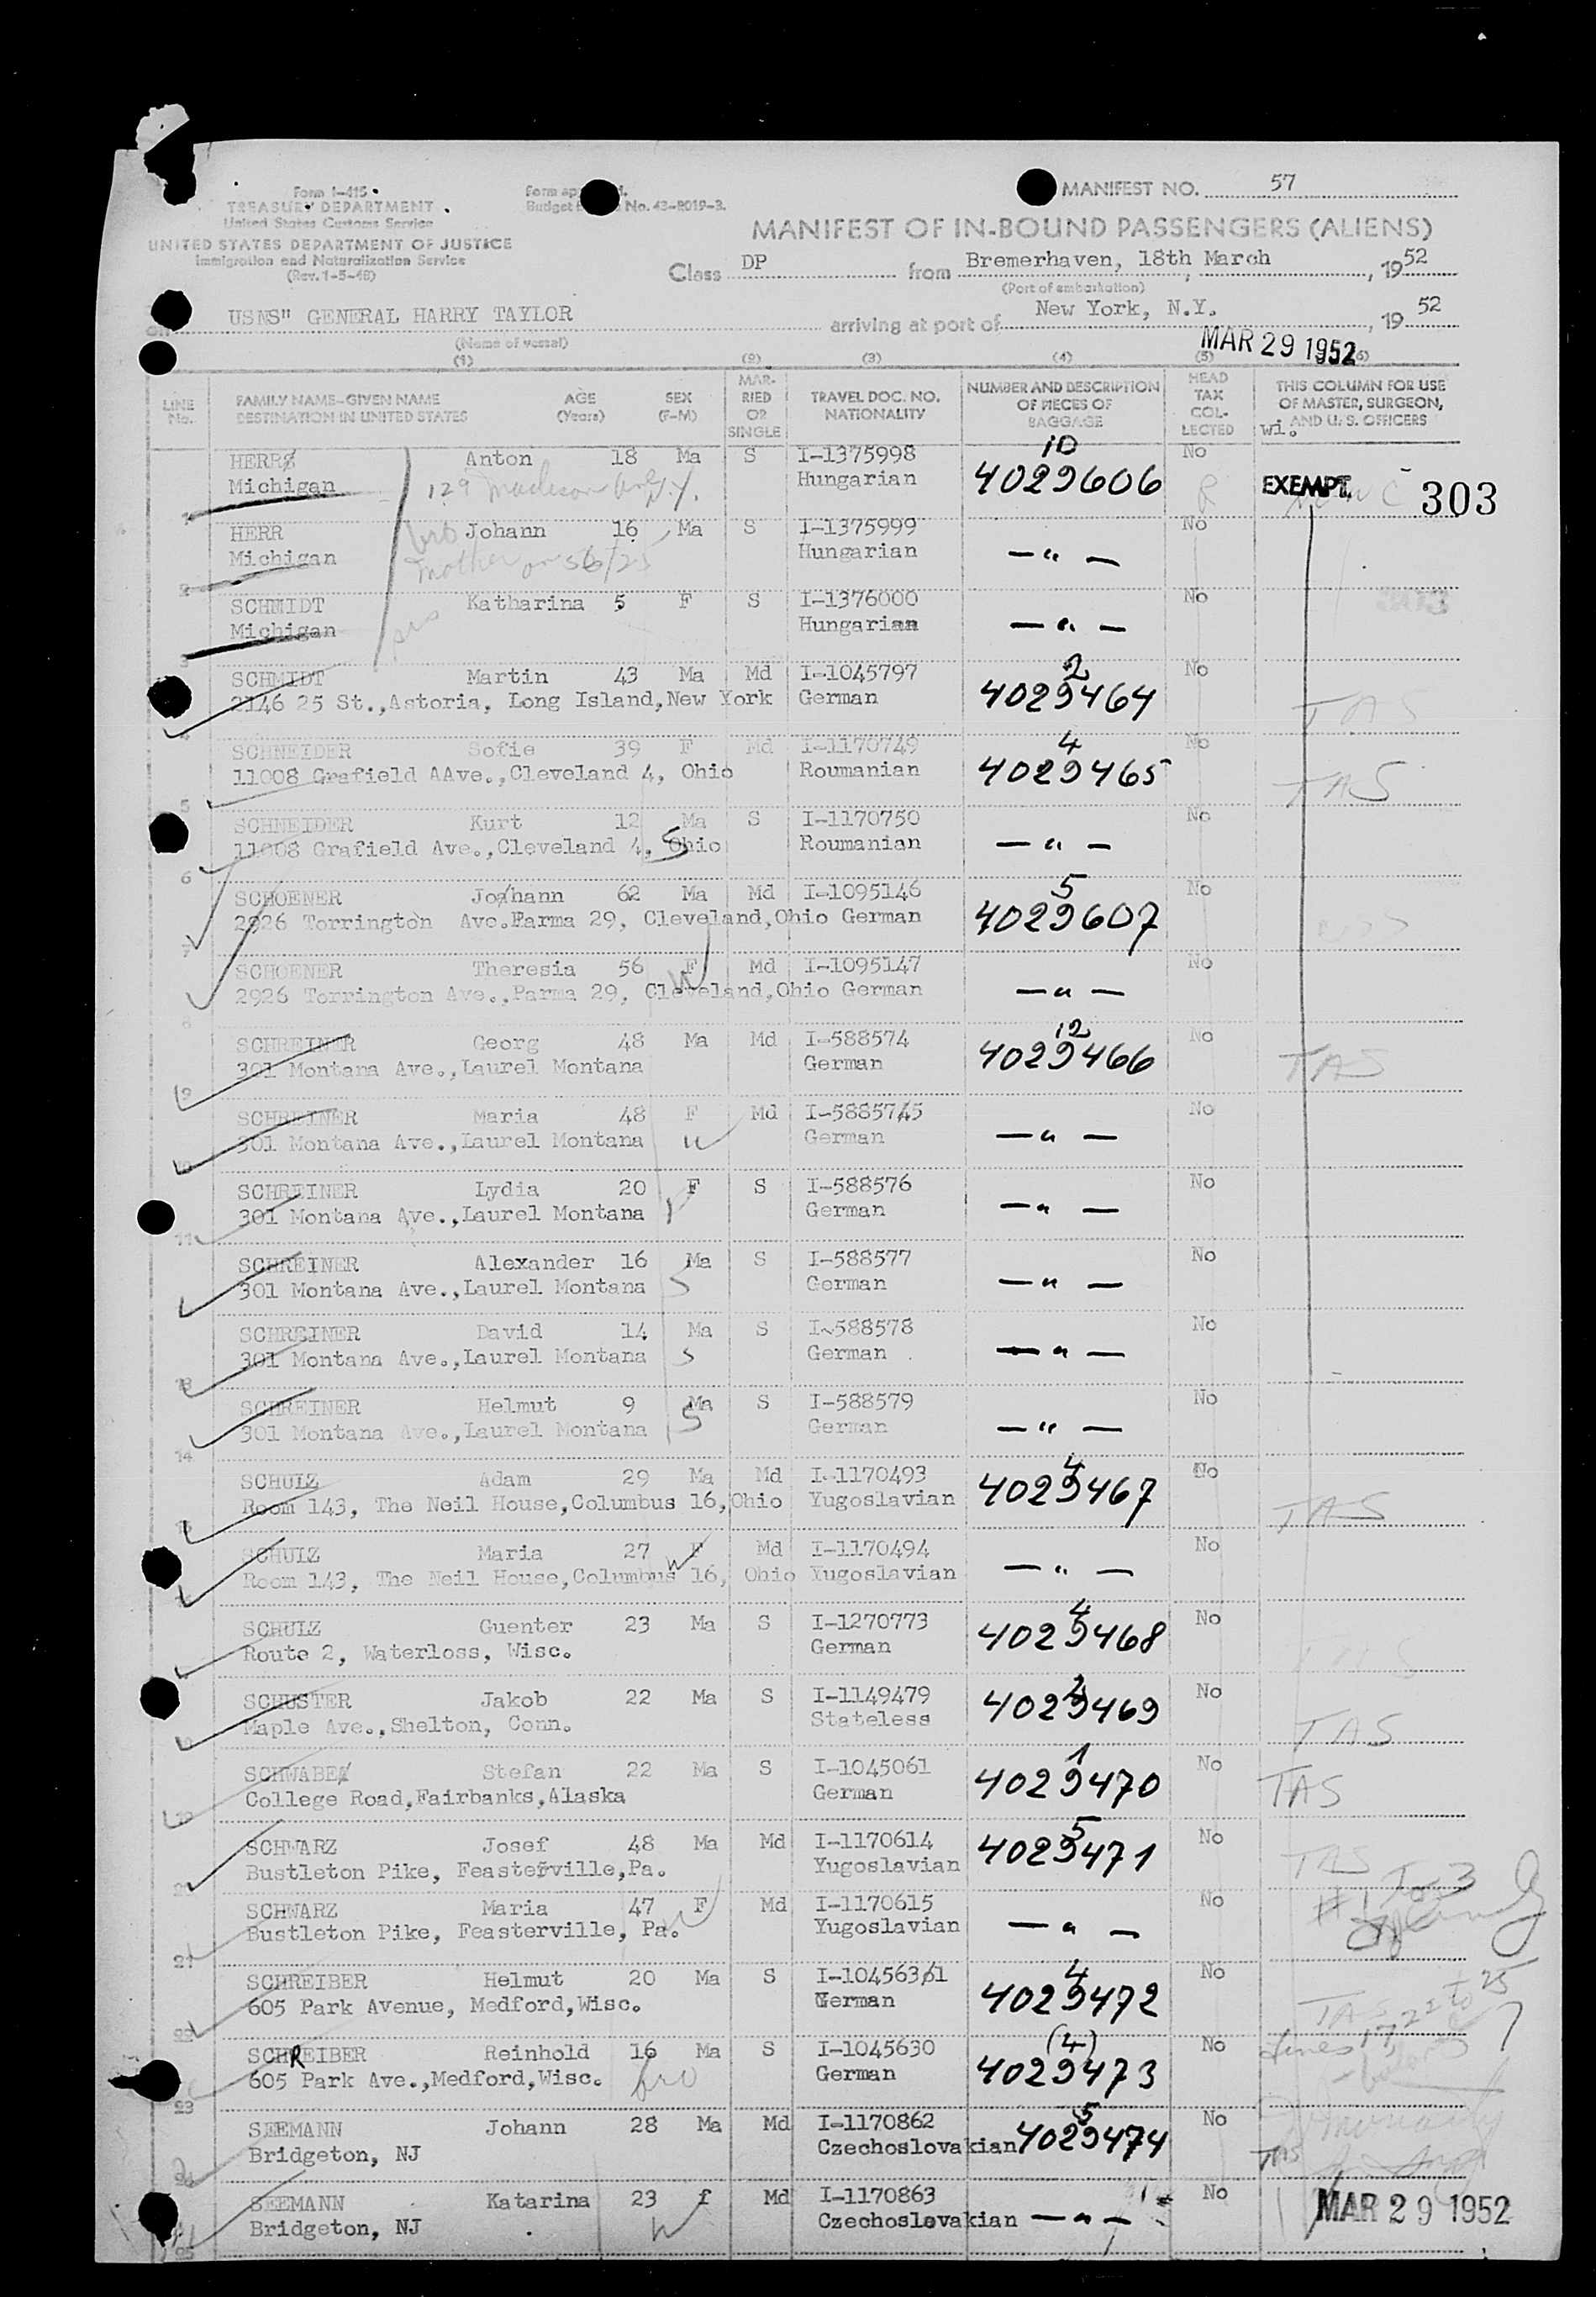 Form I-415
TREASURY DEPARTMENT
United States Customs Service
UNITED STATES DEPARTMENT OF JUSTICE
Immigration and Naturalization Service
(Rev. 1-5-48)
Form
Budget No. 43-R019-3.
MANIFEST NO. 57
MANIFEST OF IN-BOUND PASSENGERS (ALIENS)
Class DP from Bremerhaven, 18th March, 1952
(Port of embarkation)
USNS" GENERAL HARRY TAYLOR arriving at port of New York, N.Y., 19 52
(Name of vessel)
MAR 29 1952
(1) (2) (3) (4) (5) (6)
LINE No. FAMILY NAME-GIVEN NAME DESTINATION IN UNITED STATES AGE (Years) SEX (F-M) MARRIED OR SINGLE TRAVEL DOC. NO. NATIONALITY NUMBER AND DESCRIPTION OF PIECES OF BAGGAGE HEAD TAX COLLECTED THIS COLUMN FOR USE OF MASTER, SURGEON, AND U. S. OFFICERS
wi.
HERR Anton 18 Ma S I-1375998 10 No
Michigan 129 Madison Ave N.Y. Hungarian 4029606 R EXEMPT. 303
HERR bro Johann 16 Ma S I-1375999 No
2 Michigan mother on 56/25 Hungarian — " —
SCHMIDT Katharina 5 F S I-1376000 No
3 Michigan sis Hungarian — " —
SCHMIDT Martin 43 Ma Md I-1045797 2 No
4 2146 25 St.,Astoria, Long Island,New York German 4029464 TAS
SCHNEIDER Sofie 39 F Md I-1170749 4 No
5 11008 Grafield AAve.,Cleveland 4, Ohio Roumanian 4029465 TAS
SCHNEIDER Kurt 12 Ma S I-1170750 No
6 11008 Grafield Ave.,Cleveland 4, Ohio S Roumanian — " —
SCHOENER Johann 62 Ma Md I-1095146 5 No
7 2926 Torrington Ave.Parma 29, Cleveland,Ohio German 4029607
SCHOENER Theresia 56 F W Md I-1095147 No
8 2926 Torrington Ave.,Parma 29, Cleveland,Ohio German — " —
SCHREINER Georg 48 Ma Md I-588574 12 No
9 301 Montana Ave.,Laurel Montana German 4029466 TAS
SCHREINER Maria 48 F Md I-588575 No
10 301 Montana Ave.,Laurel Montana W German — " —
SCHREINER Lydia 20 F S I-588576 No
11 301 Montana Ave.,Laurel Montana German — " —
SCHREINER Alexander 16 Ma S I-588577 No
301 Montana Ave.,Laurel Montana S German — " —
SCHREINER David 14 Ma S I-588578 No
13 301 Montana Ave.,Laurel Montana S German — " —
SCHREINER Helmut 9 Ma S I-588579 No
14 301 Montana Ave.,Laurel Montana S German — " —
SCHULZ Adam 29 Ma Md I-1170493 4 No
15 Room 143, The Neil House,Columbus 16,Ohio Yugoslavian 4029467 TAS
SCHULZ Maria 27 F W Md I-1170494 No
Room 143, The Neil House,Columbus 16, Ohio Yugoslavian — " —
SCHULZ Guenter 23 Ma S I-1270773 4 No
Route 2, Waterloss, Wisc. German 4029468 TAS
SCHUSTER Jakob 22 Ma S I-1149479 No
Maple Ave.,Shelton, Conn. Stateless 4029469 TAS
SCHWABE Stefan 22 Ma S I-1045061 1 No
19 College Road,Fairbanks,Alaska German 4029470 TAS
SCHWARZ Josef 48 Ma Md I-1170614 5 No
Bustleton Pike, Feasterville,Pa. Yugoslavian 4029471 TAS
SCHWARZ Maria 47 F W Md I-1170615 No #1 To 3
21 Bustleton Pike, Feasterville, Pa. Yugoslavian — " —
SCHREIBER Helmut 20 Ma S I-1045631 4 No
22 605 Park Avenue, Medford,Wisc. German 4029472 TAS
SCHREIBER Reinhold 16 Ma S I-1045630 (4) No lines 17, 22 to 25
23 605 Park Ave.,Medford,Wisc. bro German 4029473
SEEMANN Johann 28 Ma Md I-1170862 5 No
24 Bridgeton, NJ Czechoslovakian 4029474 TAS
SEEMANN Katarina 23 f Md I-1170863 No
25 Bridgeton, NJ W Czechoslovakian — " — MAR 29 1952